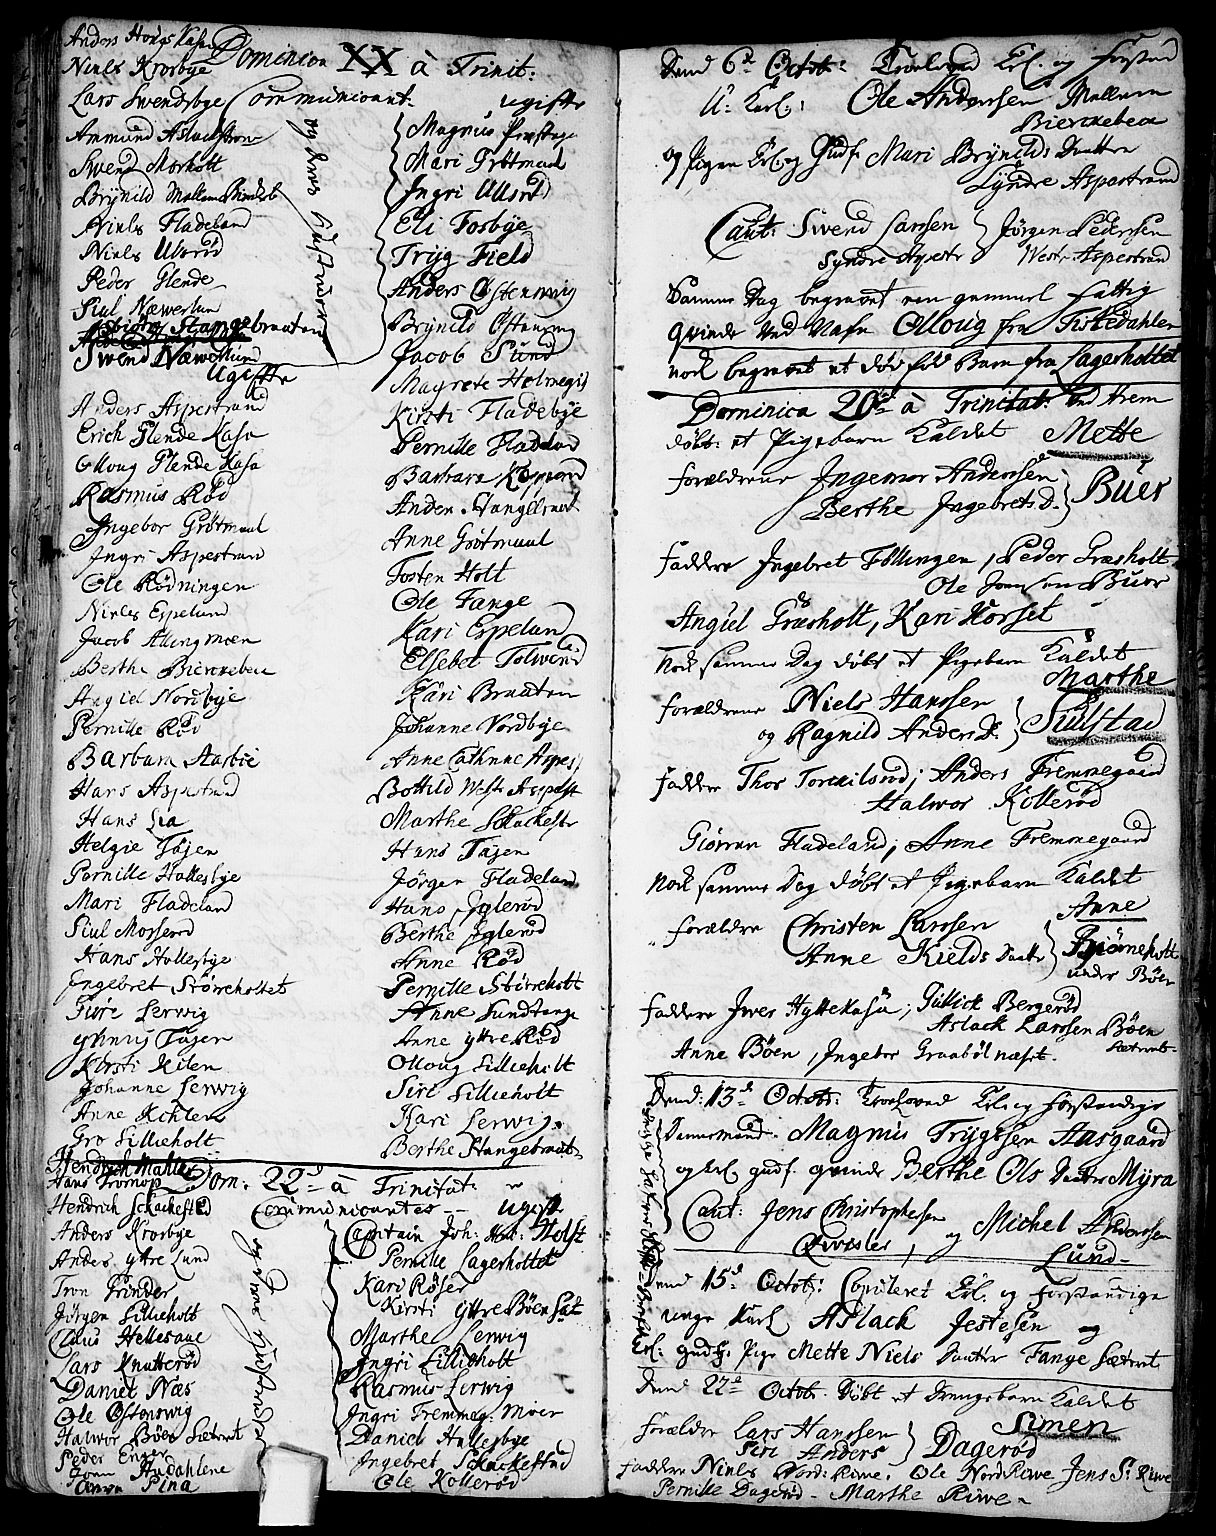 Anders Hougs Kasa
Niels Krosbye
Lars Swendsbye
Ammund Aslackstrøm
Swend Morholt
Brÿnild Mallem Biercheb
Niels Fladeland
Niels Ulsrød
Peder Glende
Siul Næwerlun
Asbiørn Stangebraaten
Swend Næwerlund
Dominica XX à Trinit:
Communicant:
og deres Hustruer
Ugifte
Anders Aspestrand
Erich Glende Kasa
Olloug Glende Kasa
Rasmus Rød
Ingebor Grøtmaal
Ingri Aspestran
Ole Rødningen
Niels Espelund
Jacob Allingmoen
Berthe Bierckebeck
Angiel Nordbÿe
Pernille Rød
Barbara Aarbie
Hans Aspestrand
Hans Lia
Helgie Tøjen
Pernille Hallesbÿe
Mari Fladeland
Siul Mosserød
Hans Hollesbÿe
Ingebret Størreholtet
Siøre Lerwig
Kirsti Kilen
Johanne Lerwig
Gro Lillieholt
ugifte
Magnus Præstega
Mari Grøtmaal
Ingri Ulsrød
Eli Fosbÿe
Trÿg Field
Anders Østenwig
Brÿnild Østenwig
Jacob Lund
Magrete Holmegil
Kirsti Fladebÿe
Pernille Fladeland
Barbara Kopperud
Anders Stangebraat
Anne Grøtmaal
Tosten Holt
Ole Tange
Kari Espelund
Elsebet Tolwend
Kari Braaten
Johanne Nordbÿe
Anne Cathrine Aspes
Bottild Westr Aspestr
Marthe Schackestr
Hans Tøjen
Jørgen Fladeland
Hans Iglerød
Berthe Iglerød
Anne Rød
Pernille Størreholt
Anne Sundtange
Anne ÿttre Rød
Olloug Lillieholt
Siri Lillieholt
Kari Lerwig
Berthe Stangebraat
Hendrich Mahler
Hans Tronop
Hendrich Schackestd
Anders Krosbÿe
Anders ÿttre Lund
Tron Grinder
Jørgen Lillieholt
Claus Hellesaae
Lars Knatterød
Daniel Næs
Ole Østenswig
Halwor Bøen Sæteret
Peder Enger
Dom: 22d à Trinitat:
Communicantes -- ugifte
og deres Hustruer
Captain Joh: Holst
Pernille Lagerholtet
Kari Røser
Kirsti ÿttre Bøen Sæt
Marthe Lerwig
Ingri Lillieholt
Rasmus Lerwig
Ingri Fremmeg: Moer
Daniel Hallesbÿe
Ingebret Schackestad
Ole Kollerød
Dend 6d Octob: Troelowed Erl. og Forstand
U: Karl: Ole Anderssen Mallum
Bierckebeck
og Pigen Erl. og Gudf. Mari Brÿnilds Daatter
Sÿndre Aspestrand
Caut: Swend Larssen } Jørgen Pedersen
Sÿndre Aspestr Westr Aspestrand
Samme Dag begravet een gammel Fattig
Qvinde ved Nafn Olloug fra Tistedahlen
nock begravet et død fød Barn fra Lagerholtet
Dominica 20de à Trinitat: ved Arem
døbt et Pigebarn Kaldet Mette
Forældrene Ingemor Anderssen
Berthe Ingebrets D. } Buer
Faddere Ingebret Føllingen, Peder Græsholt
Ole Joensen Buer
Angiel Græsholt, Kari Korset
Nock samme Dag døbt et Pigebarn Kaldet
Marthe
Forældrene Niels Hanssen
og Ragnild Anders D. } Siulstad
Faddere Thor Torckilsrød; Anders Fremmegaard
Halwor Kollerød
Giøran Fladeland; Anne Fremmegaard
Nock samme Dag døbt et Pigebarn Kaldet
Anne
Forældre Christen Larssen
Anne Kields Daatter } Biørneholt
under Bøen
Faddere Iwer Hyttekasa; Gullick Bergerød
Aslack Larssen Bøen
Sæteret
Anne Bøen, Ingebor Graabøl næset.
Dend: 13d Octob: Troelowed Erl. og Forstandige
Dannemand: Magnus Trÿgssen Aasgaard
og Erl. gudf. qvinde Berthe Ols Daatter Mÿra
Caut: Jens Christophersen og Michel Anderssen
Lund
Dend 15d Octob: Copuleret Erl. og Forstandige
unge Karl Aslack Jestesen og
Erl: gudf: Pige Mette Niels Daatter Tange Sæteret
Dend 22d Octob. Døbt et Drengebarn Kaldet
Simen
Forældre Lars Hanssen
Siri Anders } Dagerød
Faddere Niels Nord: Riwe. Ole Nord Riwe Jens S: Riwe
Pernille Dagerød - Marthe Riwe